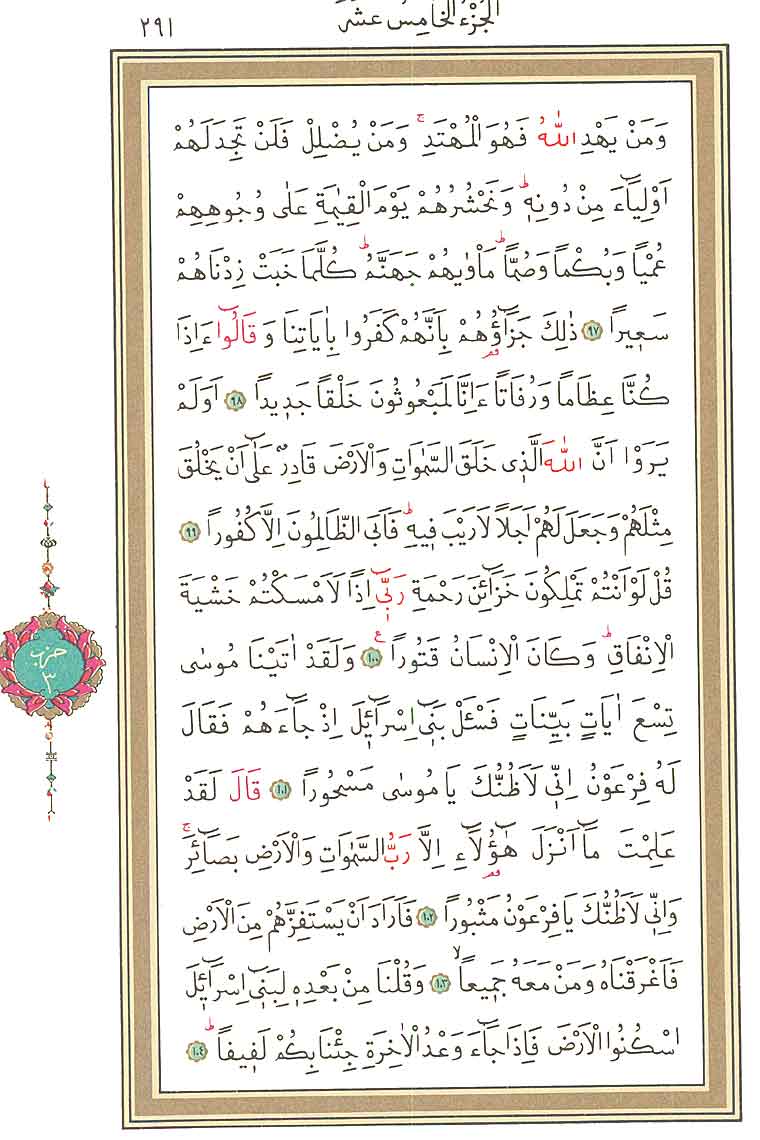 الجزء الخامس عشر
٢٩١
وَمَنْ يَهْدِ اللّٰهُ فَهُوَ الْمُهْتَدِۚ وَمَنْ يُضْلِلْ فَلَنْ تَجِدَ لَهُمْ
اَوْلِيَٓاءَ مِنْ دُونِه۪ۜ وَنَحْشُرُهُمْ يَوْمَ الْقِيٰمَةِ عَلٰى وُجُوهِهِمْ
عُمْيًا وَبُكْمًا وَصُمًّاۜ مَأْوٰيهُمْ جَهَنَّمُۜ كُلَّمَا خَبَتْ زِدْنَاهُمْ
سَع۪يرًا ٩٧ ذٰلِكَ جَزَٓاؤُ۬هُمْ بِاَنَّهُمْ كَفَرُوا بِاٰيَاتِنَا وَقَالُٓوا ءَاِذَا
كُنَّا عِظَامًا وَرُفَاتًا ءَاِنَّا لَمَبْعُوثُونَ خَلْقًا جَد۪يدًا ٩٨ اَوَلَمْ
يَرَوْا اَنَّ اللّٰهَ الَّذ۪ي خَلَقَ السَّمٰوَاتِ وَالْاَرْضَ قَادِرٌ عَلٰٓى اَنْ يَخْلُقَ
مِثْلَهُمْ وَجَعَلَ لَهُمْ اَجَلًا لَا رَيْبَ ف۪يهِۜ فَاَبَى الظَّالِمُونَ اِلَّا كُفُورًا ٩٩
قُلْ لَوْ اَنْتُمْ تَمْلِكُونَ خَزَٓائِنَ رَحْمَةِ رَبّ۪ٓي اِذًا لَاَمْسَكْتُمْ خَشْيَةَ
الْاِنْفَاقِۜ وَكَانَ الْاِنْسَانُ قَتُورًا۟ ١٠٠ وَلَقَدْ اٰتَيْنَا مُوسٰى
تِسْعَ اٰيَاتٍ بَيِّنَاتٍ فَسْـَٔلْ بَن۪ٓي اِسْرَٓائ۪لَ اِذْ جَٓاءَهُمْ فَقَالَ
لَهُ فِرْعَوْنُ اِنّ۪ي لَاَظُنُّكَ يَا مُوسٰى مَسْحُورًا ١٠١ قَالَ لَقَدْ
عَلِمْتَ مَٓا اَنْزَلَ هٰٓؤُ۬لَٓاءِ اِلَّا رَبُّ السَّمٰوَاتِ وَالْاَرْضِ بَصَٓائِرَۚ
وَاِنّ۪ي لَاَظُنُّكَ يَا فِرْعَوْنُ مَثْبُورًا ١٠٢ فَاَرَادَ اَنْ يَسْتَفِزَّهُمْ مِنَ الْاَرْضِ
فَاَغْرَقْنَاهُ وَمَنْ مَعَهُ جَم۪يعًاۙ ١٠٣ وَقُلْنَا مِنْ بَعْدِه۪ لِبَن۪ٓي اِسْرَٓائ۪لَ
اسْكُنُوا الْاَرْضَ فَاِذَا جَٓاءَ وَعْدُ الْاٰخِرَةِ جِئْنَا بِكُمْ لَف۪يفًاۜ ١٠٤
حزب
٣